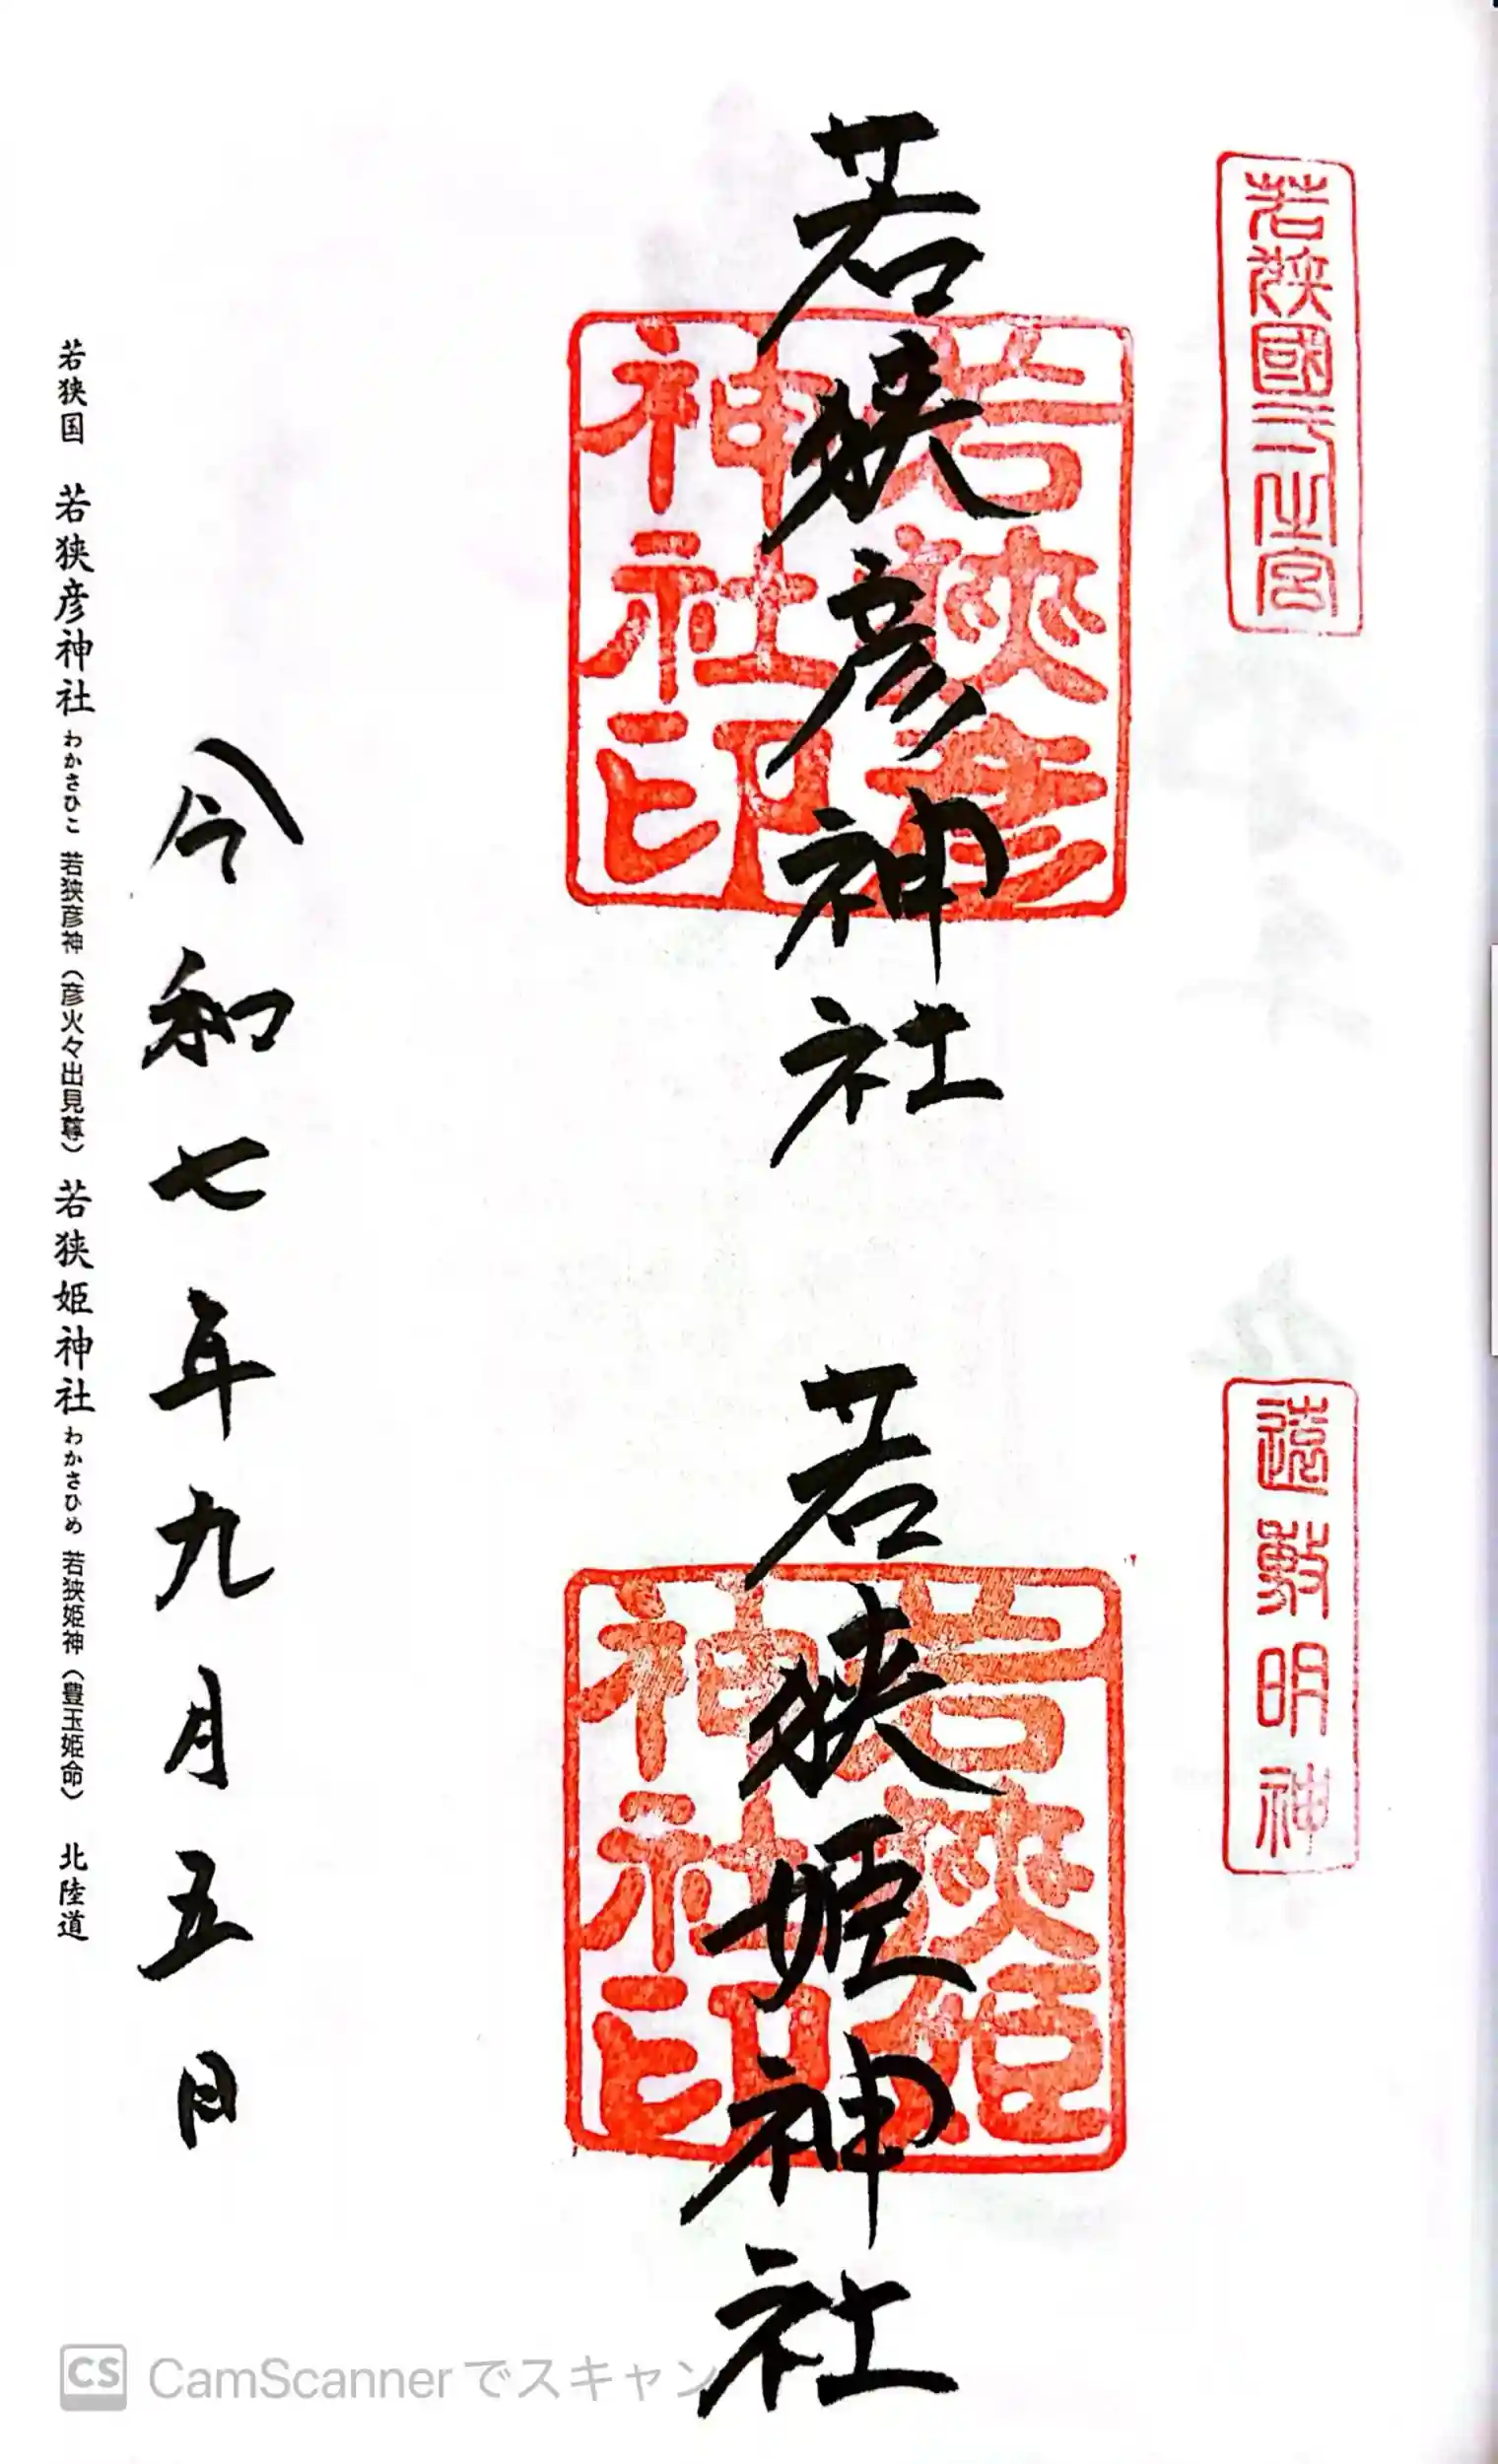 若狹國一之宮
遠敷明神
若狭彦神社
若狹彦
神社印
若狭姫神社
若狹姫
神社印
令和七年九月五日
若狭国 若狭彦神社 わかさひこ 若狭彦神（彦火々出見尊） 若狭姫神社 わかさひめ 若狭姫神（豊玉姫命） 北陸道
CS CamScannerでスキャン